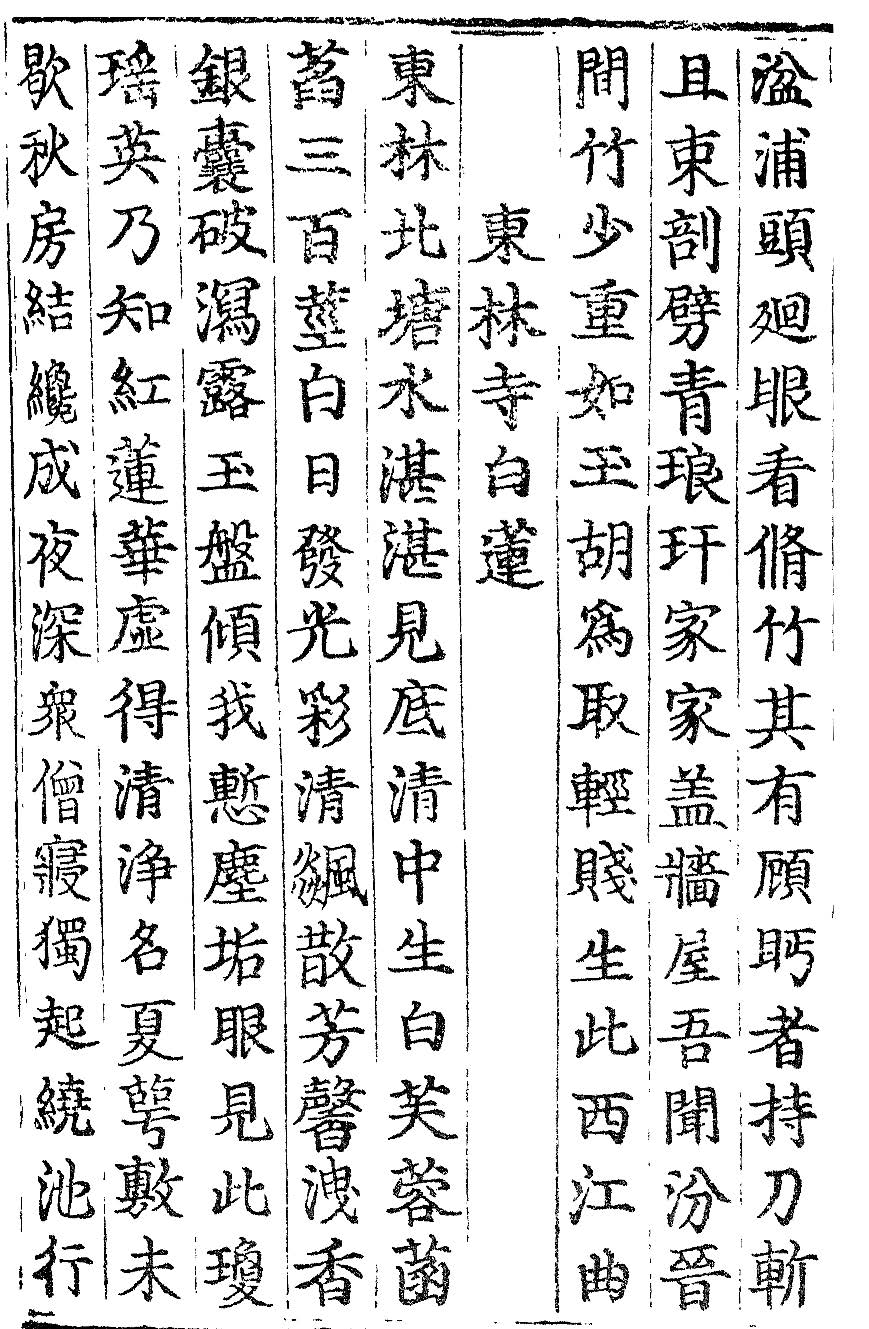 湓浦頭廻眼看脩竹其有顧眄者持刀斬
且束剖劈青琅玕家家盖牆屋吾聞汾晉
間竹少重如玉胡爲取輕賤生此西江曲
東林寺白蓮
東林北塘水湛湛見底清中生白芙蓉菡
萏三百莖白日發光彩清飈散芳馨洩香
銀囊破瀉露玉盤傾我慙塵垢眼見此瓊
瑶英乃知紅蓮華虛得清淨名夏萼敷未
歇秋房結纔成夜深衆僧寢獨起繞池行